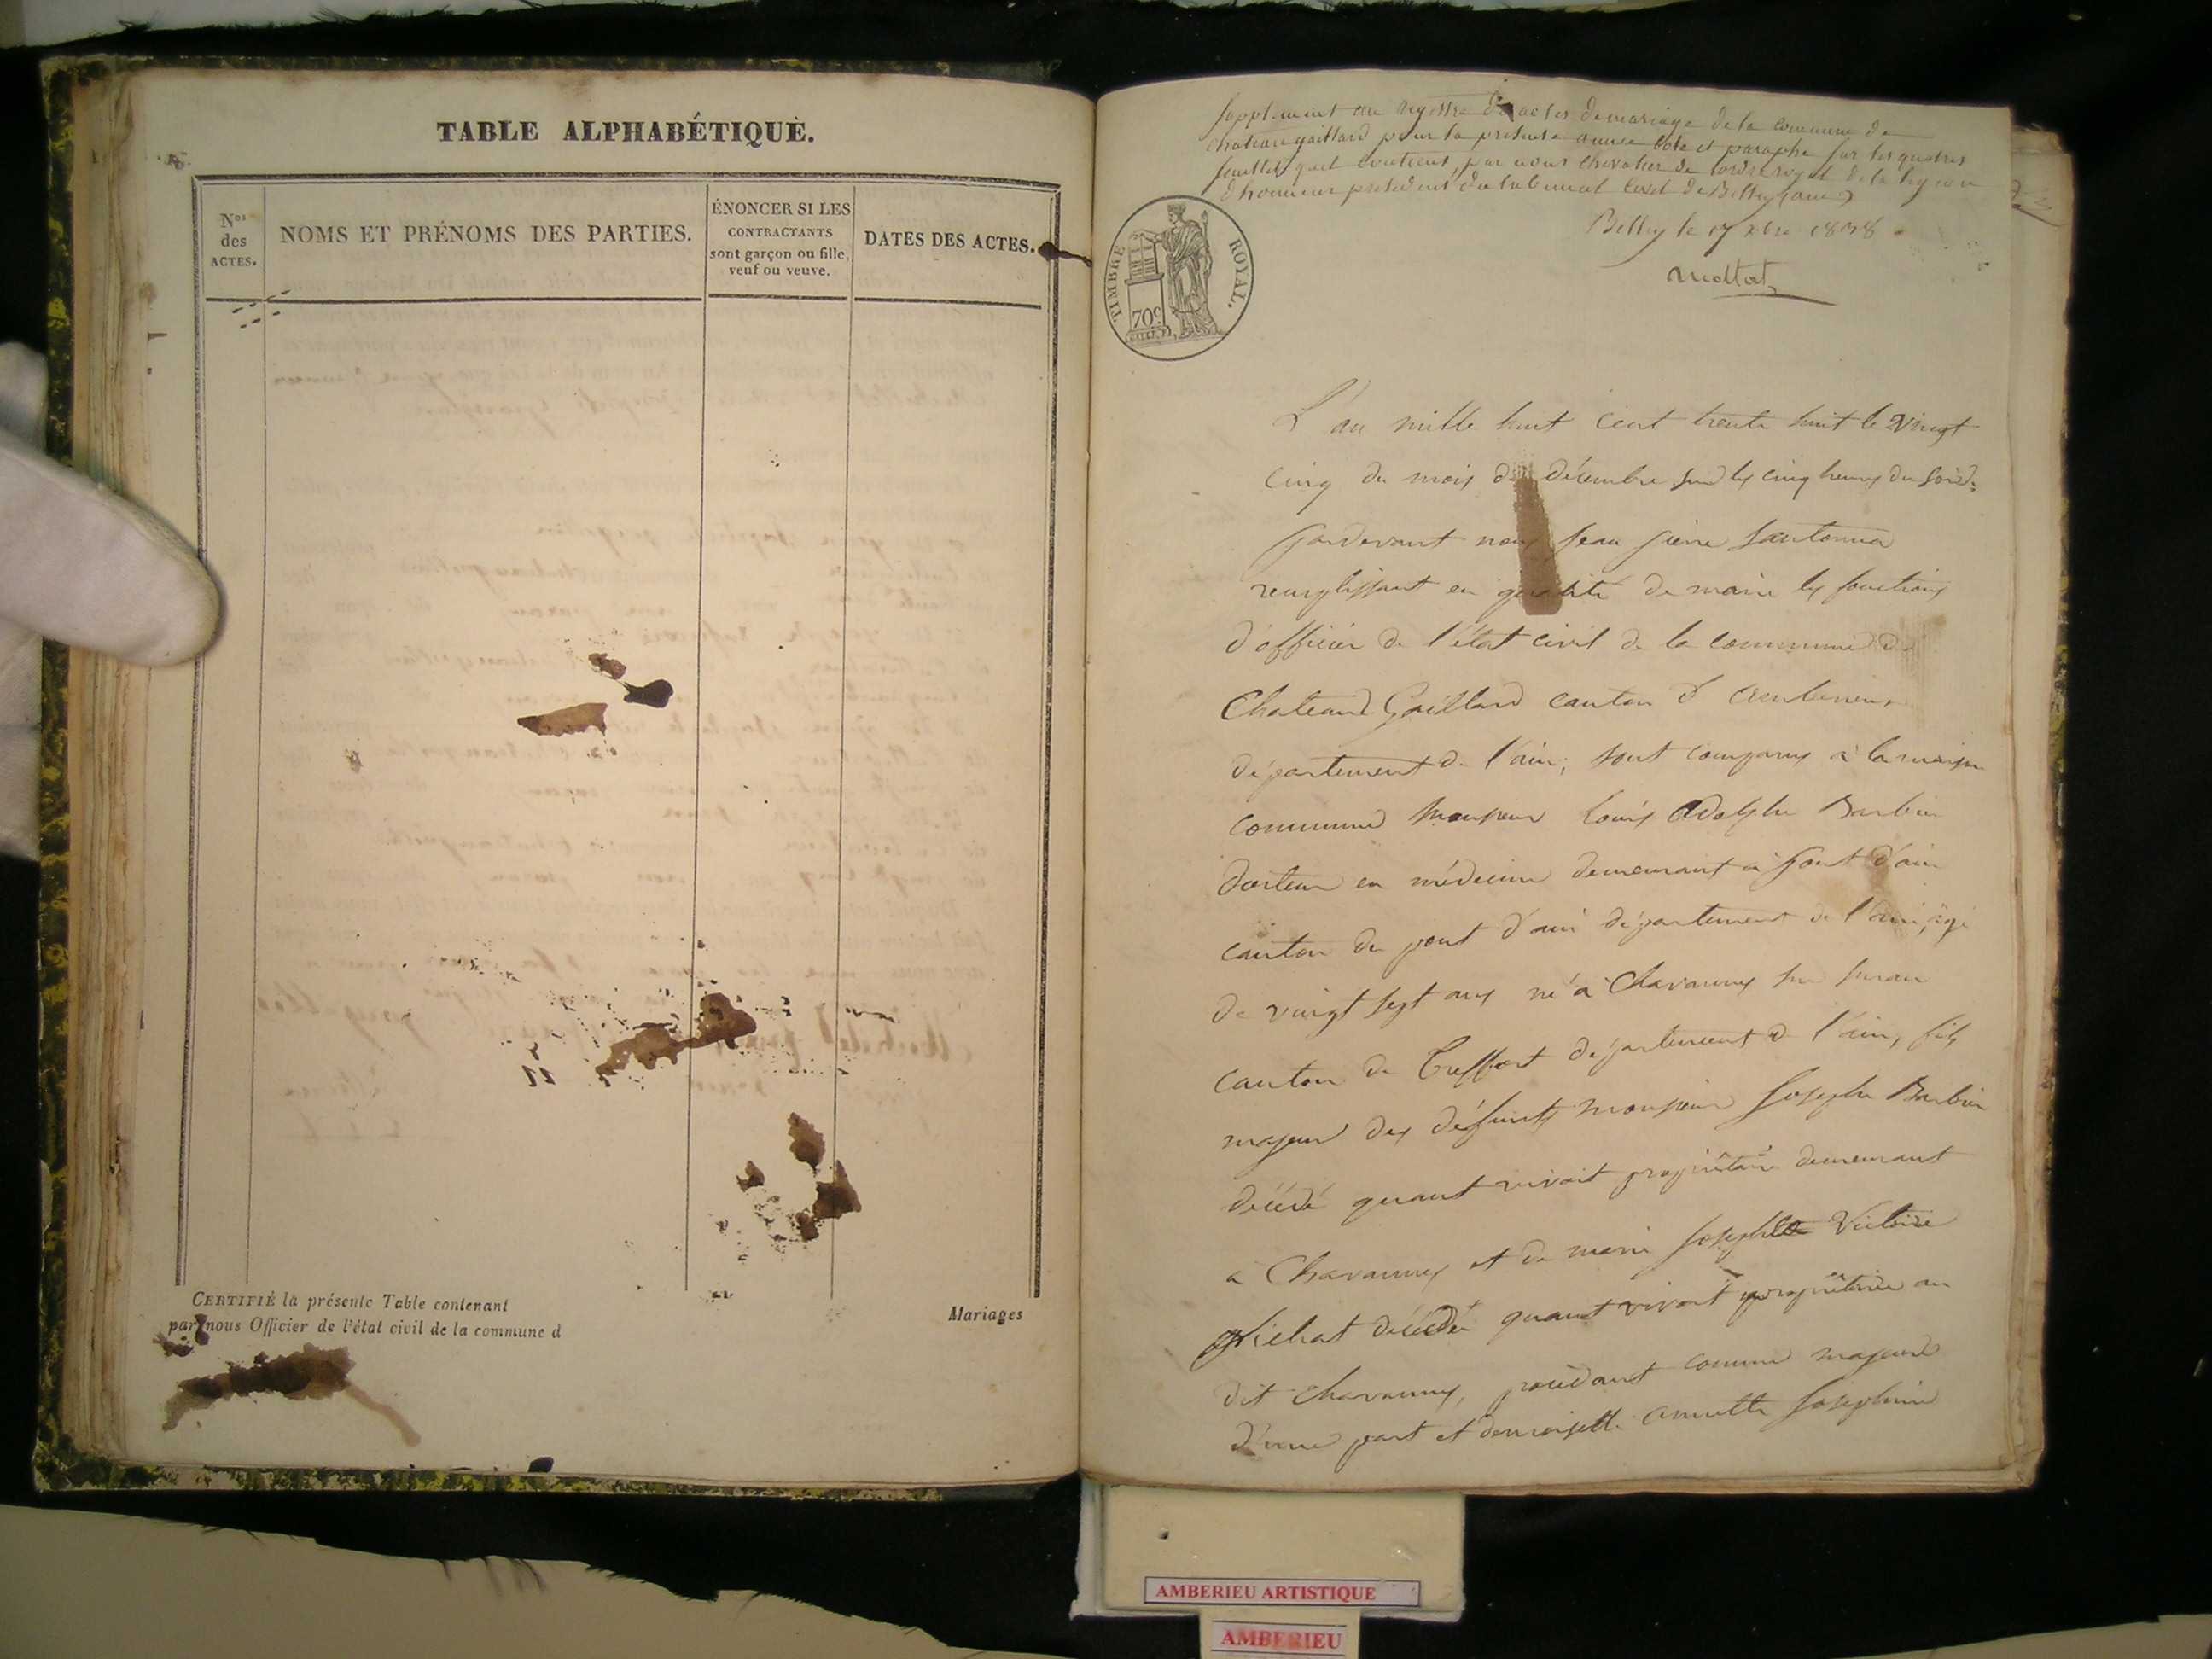 TABLE ALPHABÉTIQUE.
Nos des ACTES.
NOMS ET PRÉNOMS DES PARTIES.
ÉNONCER SI LES
CONTRACTANTS
sont garçon ou fille,
veuf ou veuve.
DATES DES ACTES.
CERTIFIÉ la présente Table contenant
Mariages
par nous Officier de l'état civil de la commune d
supplement au registre des actes de mariage de la commune de
chateaugaillard pour la presente annee cote et paraphe sur les quatres
feuillets quil contient, par nous chevalier de lordre royal de la legion
dhonneur president du tribunal civil de Belley
Belley le 17 xbre 1838
TIMBRE ROYAL.
70c
L'an mille huit cent trente huit le vingt
cinq du mois de décembre sur les cinq heures du soir.
pardevant nous Jean pierre
remplissant en qualité de maire les fonctions
d'officier de l'état civil de la commune de
Chateau Gaillard canton d'
département de l'ain, sont comparus à la maison
commune monsieur Louis Adolphe Barbier
docteur en médecine demeurant à pont d'ain
canton du pont d'ain département de l'ain, agé
de vingt sept ans né à Chavannes sur suran
canton de Treffort département de l'ain, fils
majeur des défunts monsieur Joseph Barbier
décédé quant vivait propriétaire demeurant
à Chavannes et de marie Josephte Victoire
décédée quant vivait propriétaire au
dit chavannes, procédant comme majeur
d'une part et demoiselle annette Josephine
AMBERIEU ARTISTIQUE
AMBERIEU